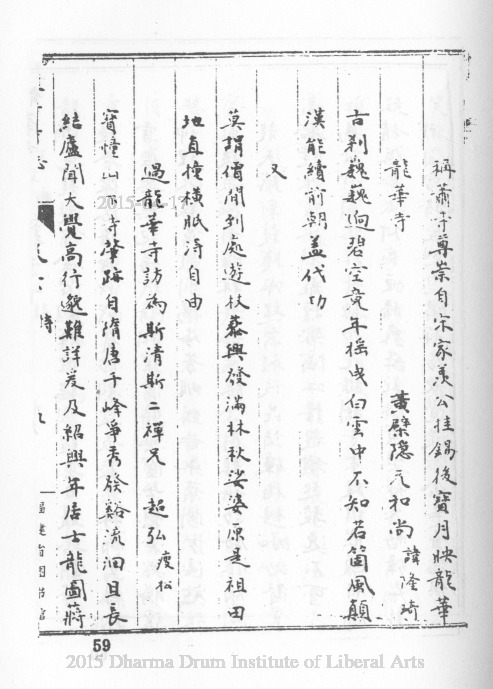 稱蕭寺尊崇自宋家羨公挂錫後寶月映龍華
龍華寺　黃檗隱元和尚 諱隆琦
古刹巍巍逈碧空竟年搖曳白雲中不知若箇風顛
漢能續前朝蓋代功
又
莫謂僧閒到處遊杖藜興發滿林秋娑婆原是祖田
地直橦橫眠得自由
過龍華寺訪為斯清斯二禪兄 超弘 渡松
寶幢山下寺肇跡自隋唐千峰爭秀發谿流洄且長
結廬聞大覺高行邈難詳爰及紹興年居士龍圖蔣
詩
福建省图书馆
59
2015 Dharma Drum Institute of Liberal Arts